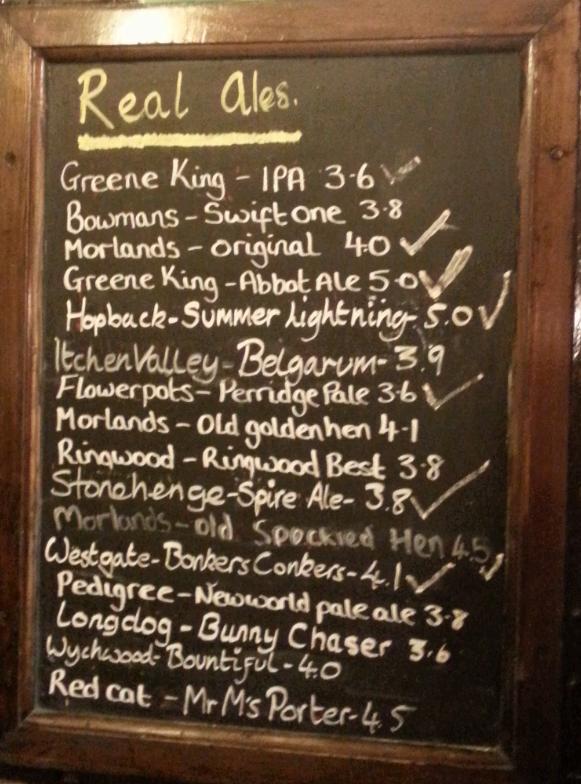 Real Ales.
Greene King - IPA 3.6 ✓
Bowmans - Swift one 3.8
Morlands - original 4.0 ✓
Greene King - Abbot Ale 5.0 ✓
Hopback - Summer Lightning 5.0 ✓
Itchen Valley - Belgarum - 3.9
Flowerpots - Perridge Pale 3.6 ✓
Morlands - Old golden hen 4.1
Ringwood - Ringwood Best 3.8
Stonehenge - Spire Ale - 3.8 ✓
Morlands - old Speckled Hen 4.5 ✓
Westgate - Bonkers Conkers - 4.1 ✓
Pedigree - New world pale ale 3.8
Longdog - Bunny Chaser 3.6
Wychwood - Bountiful - 4.0
Red cat - Mr M's Porter - 4.5